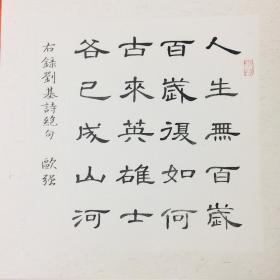 人生無百歲
百歲復如何
古來英雄士
各已成山河
右錄劉基詩絕句 歐強